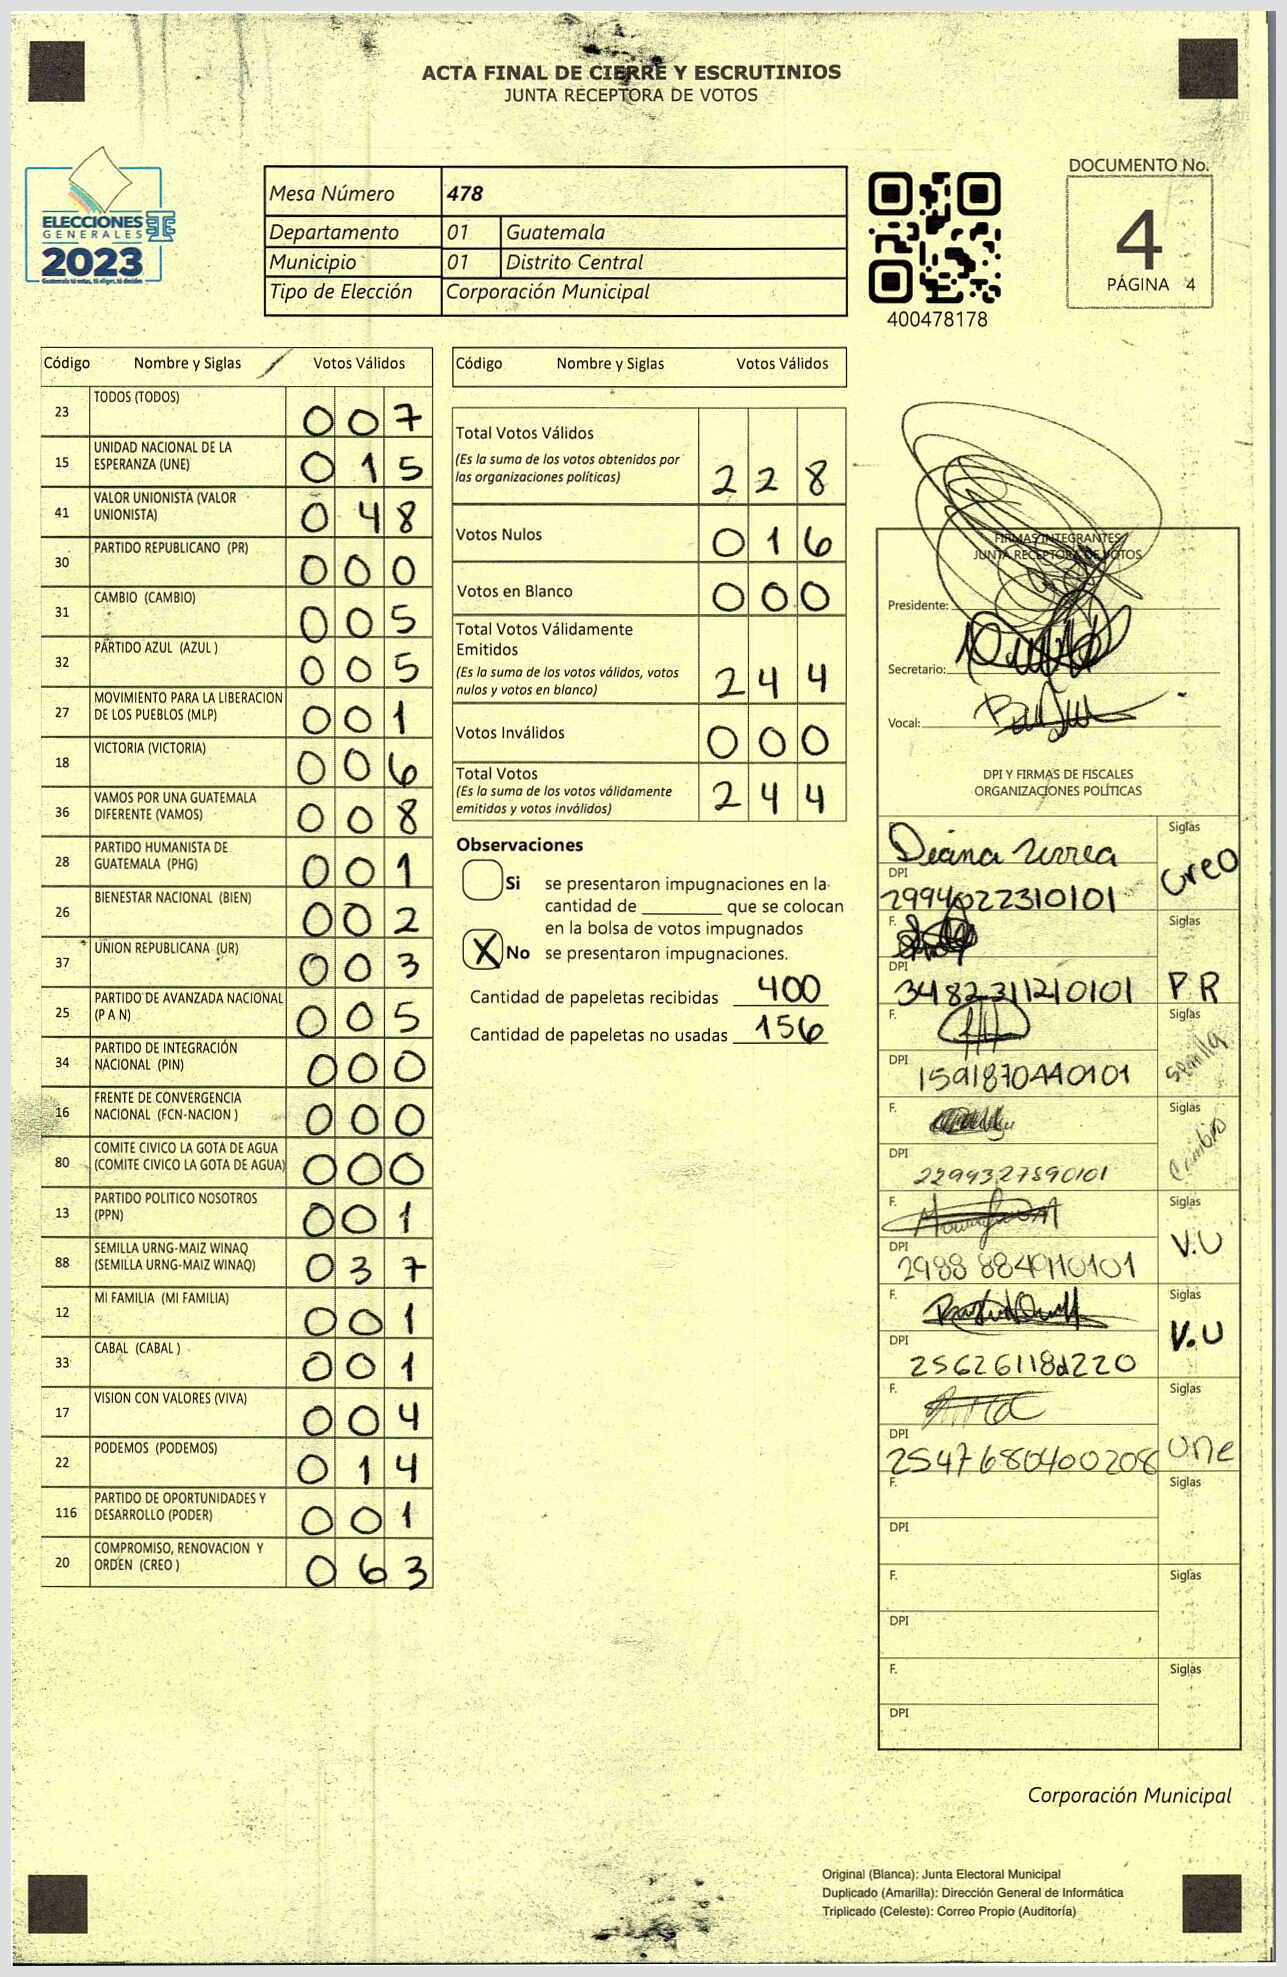 ACTA FINAL DE CIERRE Y ESCRUTINIOS
JUNTA RECEPTORA DE VOTOS
ELECCIONES
GENERALES
2023
Mesa Número 478
Departamento 01 Guatemala
Municipio 01 Distrito Central
Tipo de Elección Corporación Municipal
400478178
DOCUMENTO No.
4
PÁGINA 4
Código Nombre y Siglas Votos Válidos
23 TODOS (TODOS) 0 0 7
15 UNIDAD NACIONAL DE LA
ESPERANZA (UNE) 0 1 5
41 VALOR UNIONISTA (VALOR
UNIONISTA) 0 4 8
30 PARTIDO REPUBLICANO (PR) 0 0 0
31 CAMBIO (CAMBIO) 0 0 5
32 PARTIDO AZUL (AZUL ) 0 0 5
27 MOVIMIENTO PARA LA LIBERACION
DE LOS PUEBLOS (MLP) 0 0 1
18 VICTORIA (VICTORIA) 0 0 6
36 VAMOS POR UNA GUATEMALA
DIFERENTE (VAMOS) 0 0 8
28 PARTIDO HUMANISTA DE
GUATEMALA (PHG) 0 0 1
26 BIENESTAR NACIONAL (BIEN) 0 0 2
37 UNION REPUBLICANA (UR) 0 0 3
25 PARTIDO DE AVANZADA NACIONAL
(P A N) 0 0 5
34 PARTIDO DE INTEGRACIÓN
NACIONAL (PIN) 0 0 0
16 FRENTE DE CONVERGENCIA
NACIONAL (FCN-NACION ) 0 0 0
80 COMITE CIVICO LA GOTA DE AGUA
(COMITE CIVICO LA GOTA DE AGUA) 0 0 0
13 PARTIDO POLITICO NOSOTROS
(PPN) 0 0 1
88 SEMILLA URNG-MAIZ WINAQ
(SEMILLA URNG-MAIZ WINAQ) 0 3 7
12 MI FAMILIA (MI FAMILIA) 0 0 1
33 CABAL (CABAL ) 0 0 1
17 VISION CON VALORES (VIVA) 0 0 4
22 PODEMOS (PODEMOS) 0 1 4
116 PARTIDO DE OPORTUNIDADES Y
DESARROLLO (PODER) 0 0 1
20 COMPROMISO, RENOVACION Y
ORDEN (CREO ) 0 6 3
Código Nombre y Siglas Votos Válidos
Total Votos Válidos
(Es la suma de los votos obtenidos por
las organizaciones políticas) 2 2 8
Votos Nulos 0 1 6
Votos en Blanco 0 0 0
Total Votos Válidamente
Emitidos
(Es la suma de los votos válidos, votos
nulos y votos en blanco) 2 4 4
Votos Inválidos 0 0 0
Total Votos
(Es la suma de los votos válidamente
emitidos y votos inválidos) 2 4 4
Observaciones
Si se presentaron impugnaciones en la
cantidad de ________ que se colocan
en la bolsa de votos impugnados
X No se presentaron impugnaciones.
Cantidad de papeletas recibidas 400
Cantidad de papeletas no usadas 156
FIRMAS INTEGRANTES
JUNTA RECEPTORA DE VOTOS
Presidente:
Secretario:
Vocal:
DPI Y FIRMAS DE FISCALES
ORGANIZACIONES POLÍTICAS
Diana Urrea Siglas
DPI Creo
2994022310101
F. Siglas
DPI
3482311210101 PR
F. Siglas
DPI 1591870440101 Semilla
F. Siglas
DPI 2299327590101 Cambio
F. Siglas
DPI V.U
2988 884910101
F. Siglas
DPI V.U
F. Siglas
DPI
2547680400208 une
F. Siglas
DPI
F. Siglas
DPI
F. Siglas
DPI
Corporación Municipal
Original (Blanca): Junta Electoral Municipal
Duplicado (Amarilla): Dirección General de Informática
Triplicado (Celeste): Correo Propio (Auditoría)